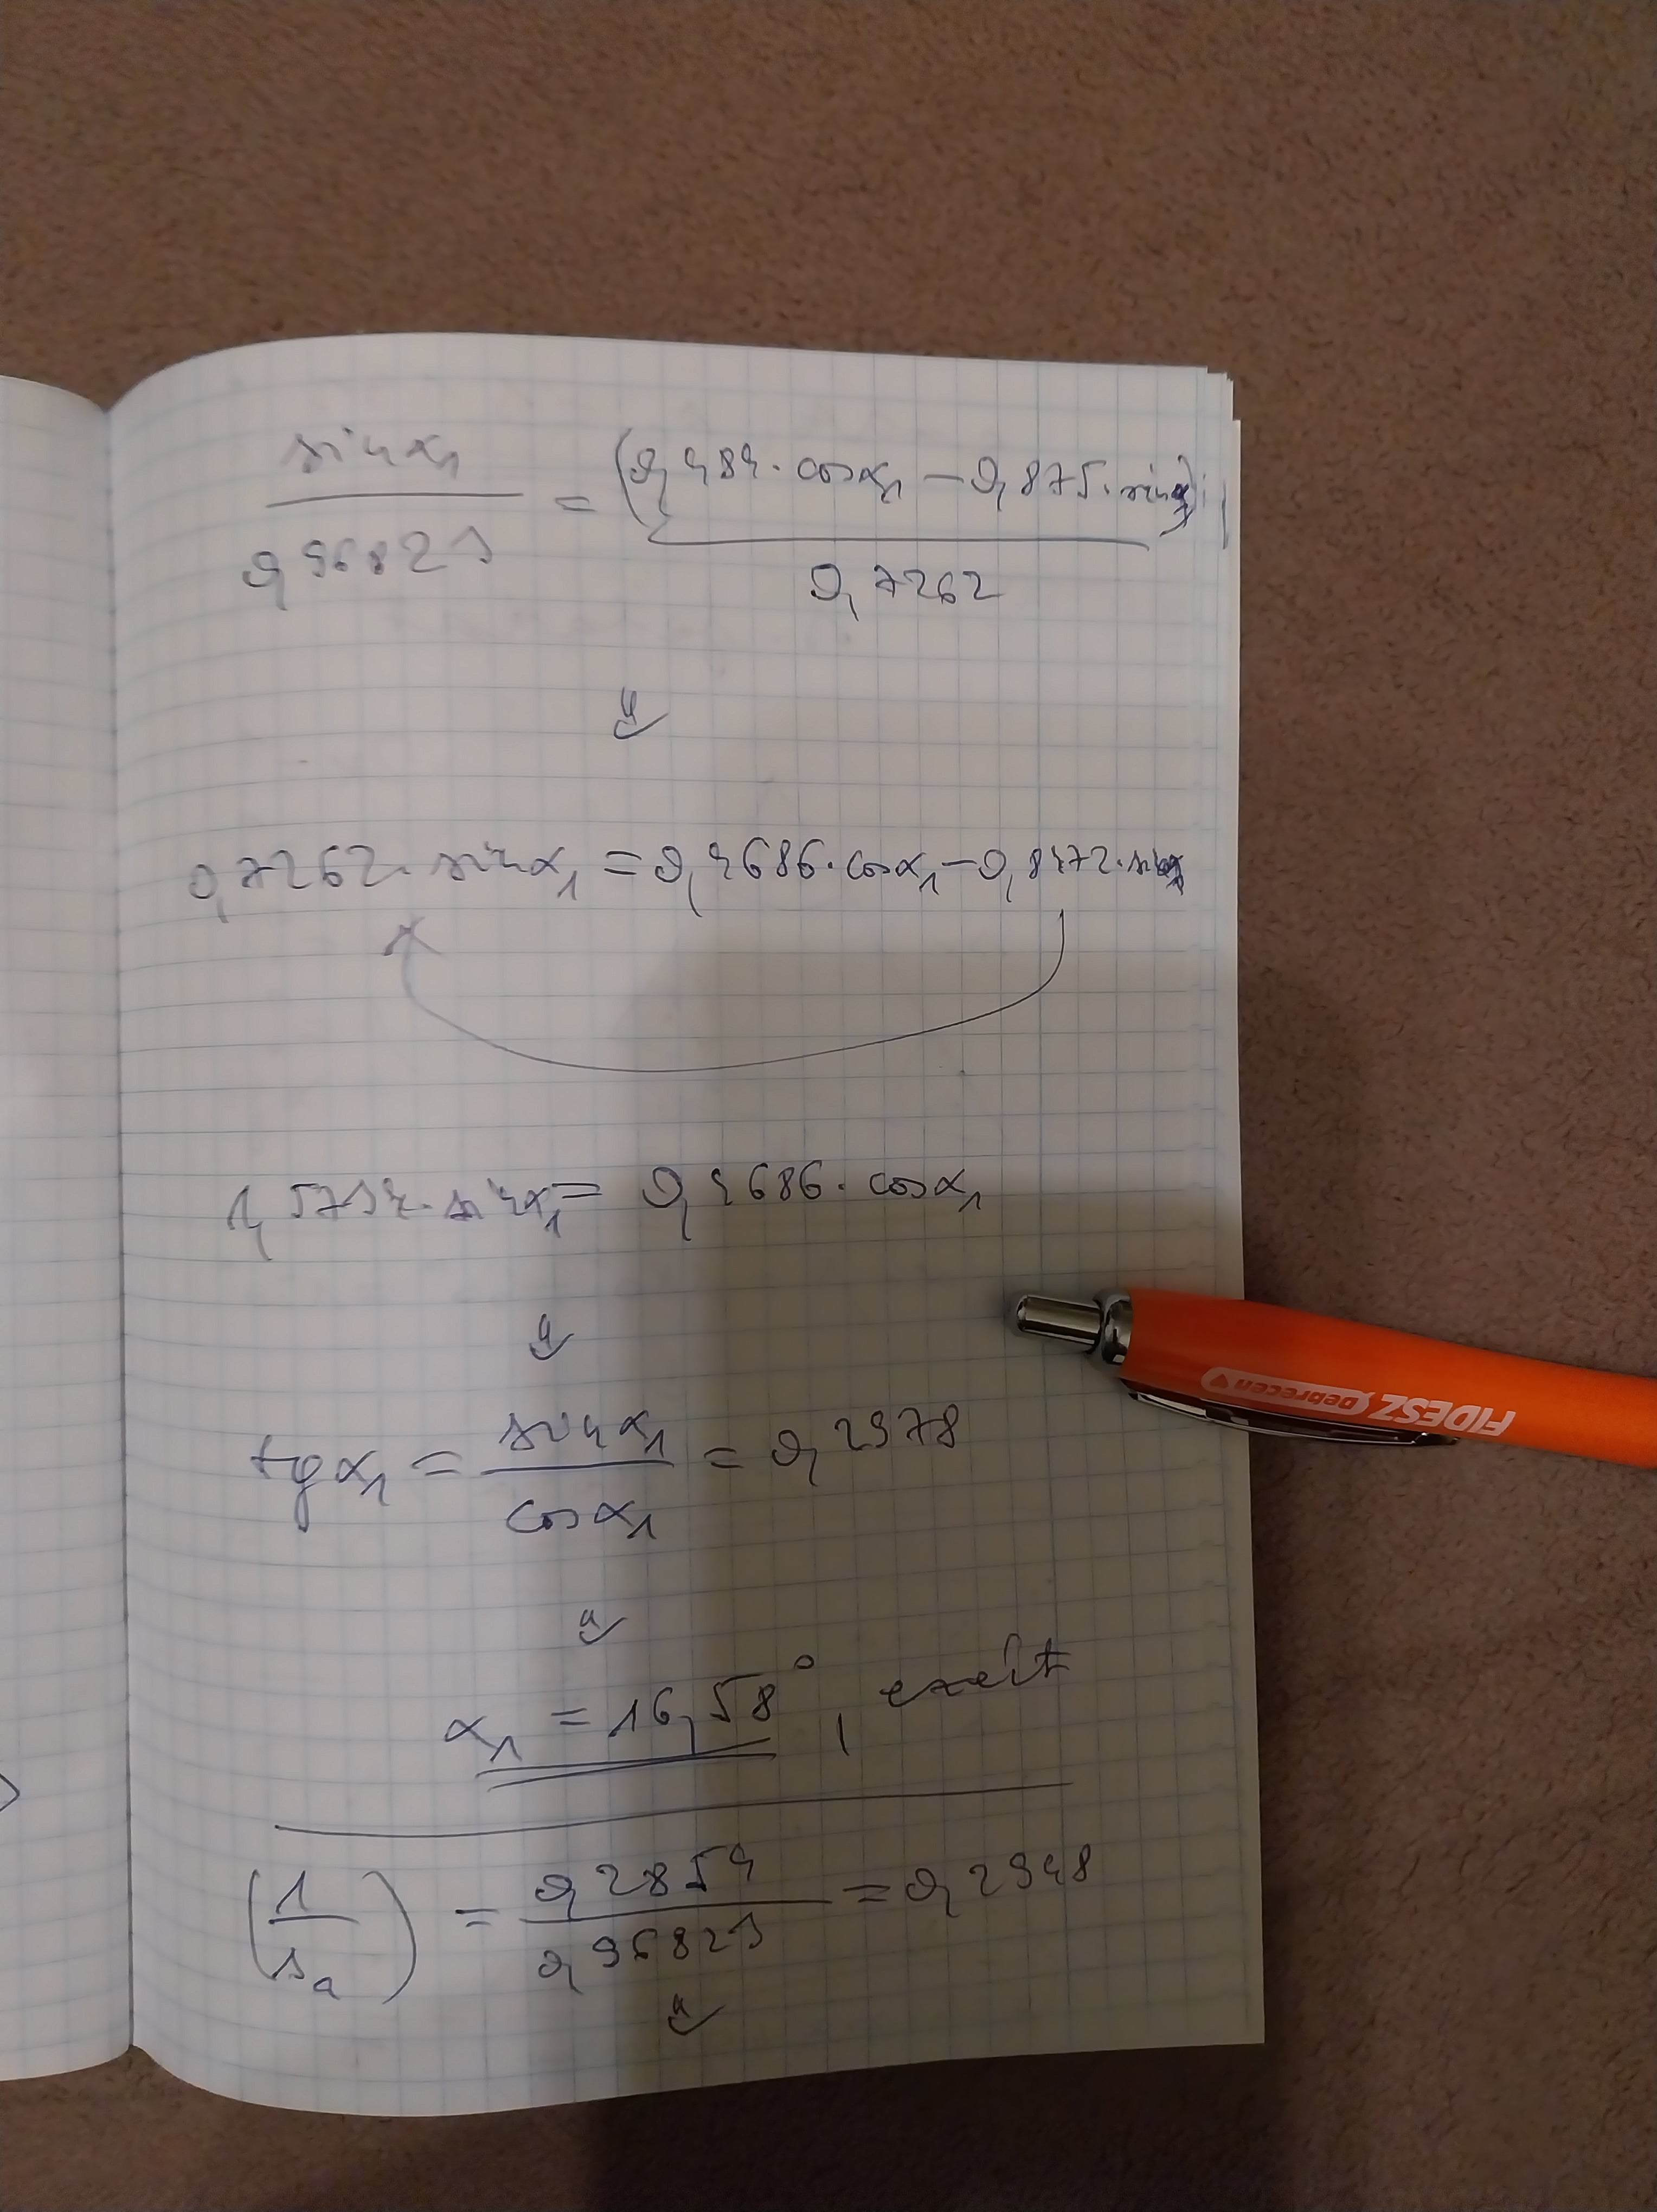 sinα₁ / 0,96825 = (0,484·cosα₁ − 0,875·sinα₁) / 0,7262
⇓
0,7262·sinα₁ = 0,4686·cosα₁ − 0,8472·sinα₁
1,5734·sinα₁ = 0,4686·cosα₁
⇓
tgα₁ = sinα₁ / cosα₁ = 0,2978
⇓
α₁ = 16,58°, ezért
(1 / sₐ) = 0,2854 / 0,96825 = 0,2948
⇓
FIDESZ Debrecen